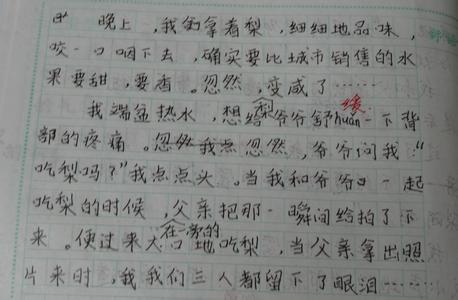 晚上，我们拿着梨，细细地品味，
咬一口咽下去，确实要比城市销售的水
果要甜，要香。忽然，变咸了……
我端盆热水，想给爷爷舒huǎn缓一下背
部的疼痛。忽然，爷爷问我："
吃梨吗？"我点点头。当我和爷爷一起
吃梨的时候，父亲把那一瞬间给拍了下
来。便过来大口地吃梨，当父亲拿出照
片来时，我们三人都留下了眼泪……